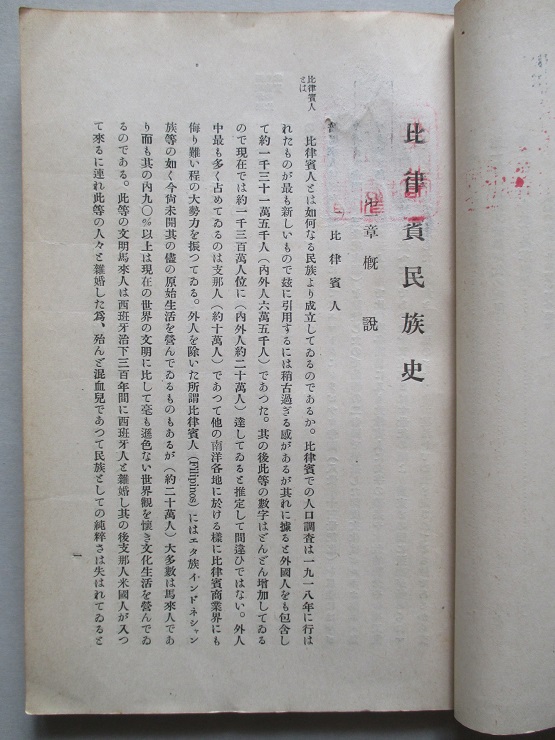 比律賓民族史
章概說
比律賓人
比律賓人
とは
比律賓人とは如何なる民族より成立してゐるのであるか。比律賓での人口調査は一九一八年に行は
れたものが最も新しいもので玆に引用するには稍古過ぎる感があるが其れに據ると外國人をも包含し
て約一千三十一萬五千人（內外人六萬五千人）であつた。其の後此等の數字はどんどん增加してゐる
ので現在では約一千三百萬人位に（內外人約二十萬人）達してゐると推定して間違ひではない。外人
中最も多く占めてゐるのは支那人（約十萬人）であつて他の南洋各地に於ける樣に比律賓商業界にも
侮り難い程の大勢力を振つてゐる。外人を除いた所謂比律賓人（Filipinos）にはエタ族インドネシャン
族等の如く今尙未開其の儘の原始生活を營んでゐるものもあるが（約二十萬人）大多數は馬來人であ
り而も其の內九〇％以上は現在の世界の文明に比して毫も遜色ない世界觀を懷き文化生活を營んでゐ
るのである。此等の文明馬來人は西班牙治下三百年間に西班牙人と雜婚し其の後支那人米國人が入つ
て來るに連れ此等の人々と雜婚した爲、殆んど混血兒であつて民族としての純粹さは失はれてゐると
一